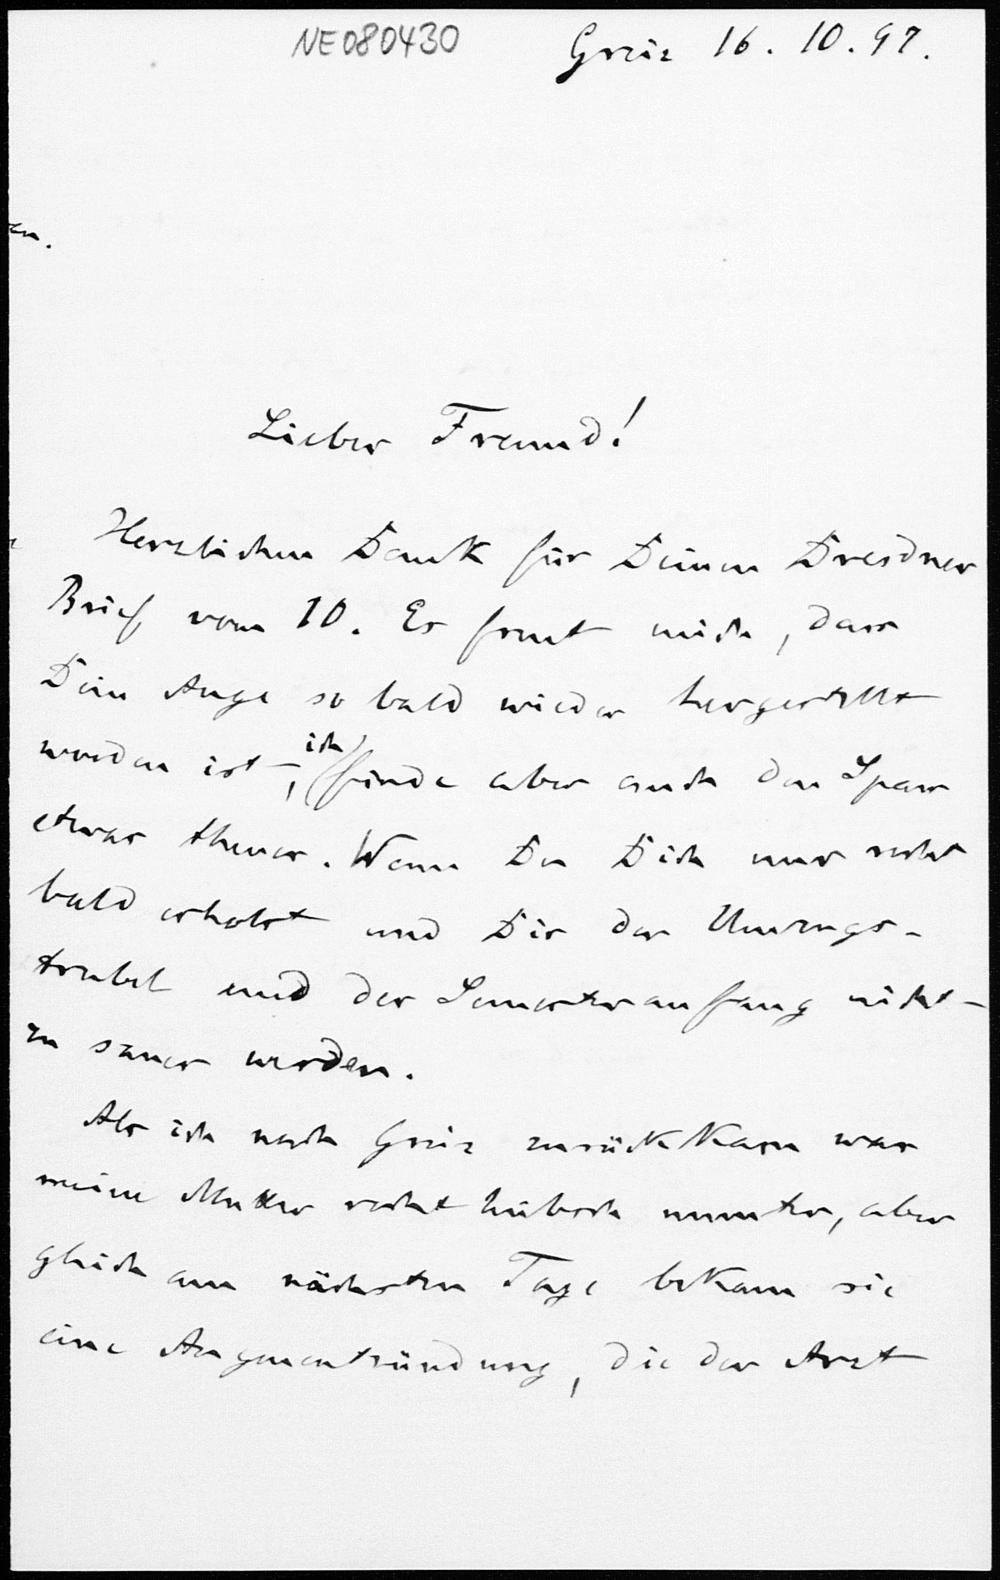 NE080430
Graz 16. 10. 97.
en.
Lieber Freund!
Herzlichen Dank für Deinen Dresdner
Brief vom 10. Es freut mich, dass
Dein Auge so bald wieder hergestellt
worden ist, ich finde aber auch den Spass
etwas theuer. Wenn Du Dich nur recht
bald erholst und Dir der Umzugs-
trubel und der Semesteranfang nicht
zu sauer werden.
Als ich nach Graz zurückkam war
meine Mutter recht hübsch munter, aber
gleich am nächsten Tage bekam sie
eine Augenentzündung, die der Arzt